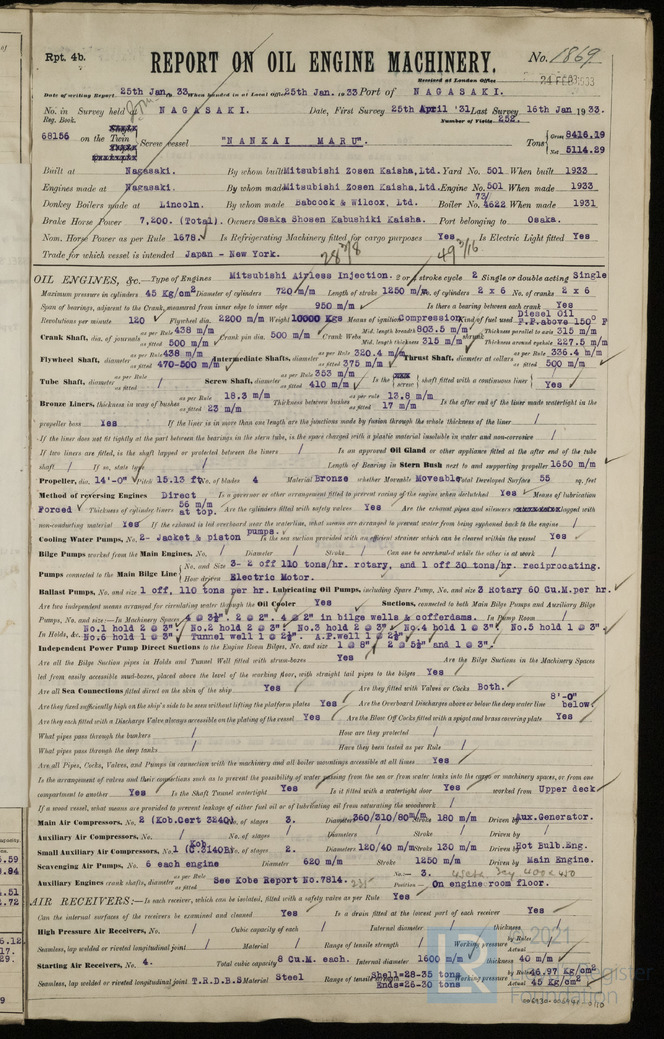 Rpt. 4b.
REPORT ON OIL ENGINE MACHINERY.
No. 1869
Received at London Office 24 FEB 1933
Date of writing Report 25th Jan. 33 When handed in at Local Office 25th Jan. 1933 Port of NAGASAKI.
No. in Survey held at NAGASAKI. Date, First Survey 25th April '31 Last Survey 16th Jan 1933.
Reg. Book. Number of Visits 252.
68156 on the Twin Screw vessel "NANKAI MARU". Tons Gross 8416.19 Net 5114.29
Built at Nagasaki. By whom built Mitsubishi Zosen Kaisha, Ltd. Yard No. 501 When built 1933
Engines made at Nagasaki. By whom made Mitsubishi Zosen Kaisha, Ltd. Engine No. 501 When made 1933
Donkey Boilers made at Lincoln. By whom made Babcock & Wilcox, Ltd. Boiler No. 73/4622 When made 1931
Brake Horse Power 7,200. (Total). Owners Osaka Shosen Kabushiki Kaisha. Port belonging to Osaka.
Nom. Horse Power as per Rule 1678. Is Refrigerating Machinery fitted for cargo purposes Yes Is Electric Light fitted Yes
Trade for which vessel is intended Japan - New York. 28 3/8 49 3/16
OIL ENGINES, &c. Type of Engines Mitsubishi Airless Injection. 2 or 4 stroke cycle 2 Single or double acting Single
Maximum pressure in cylinders 45 Kg/cm² Diameter of cylinders 720 m/m Length of stroke 1250 m/m No. of cylinders 2 x 6 No. of cranks 2 x 6
Span of bearings, adjacent to the Crank, measured from inner edge to inner edge 950 m/m Is there a bearing between each crank Yes
Revolutions per minute 120 Flywheel dia. 2200 m/m Weight 10000 Kgs Means of ignition Compression Kind of fuel used Diesel Oil F.P. above 150° F
Crank Shaft, dia. of journals as per Rule 438 m/m as fitted 500 m/m Crank pin dia. 500 m/m Crank Webs Mid. length breadth 803.5 m/m Mid. length thickness 315 m/m shrunk Thickness parallel to axis 315 m/m Thickness around eyehole 227.5 m/m
Flywheel Shaft, diameter as per Rule 438 m/m as fitted 470-500 m/m Intermediate Shafts, diameter as per Rule 320.4 m/m as fitted 375 m/m Thrust Shaft, diameter at collars as per Rule 336.4 m/m as fitted 500 m/m
Tube Shaft, diameter as per Rule as fitted / Screw Shaft, diameter as per Rule 353 m/m as fitted 410 m/m Is the screw shaft fitted with a continuous liner Yes
Bronze Liners, thickness in way of bushes as per Rule 18.3 m/m as fitted 23 m/m Thickness between bushes as per Rule 13.8 m/m as fitted 17 m/m Is the after end of the liner made watertight in the
propeller boss Yes If the liner is in more than one length are the junctions made by fusion through the whole thickness of the liner /
If the liner does not fit tightly at the part between the bearings in the stern tube, is the space charged with a plastic material insoluble in water and non-corrosive /
If two liners are fitted, is the shaft lapped or protected between the liners / Is an approved Oil Gland or other appliance fitted at the after end of the tube
shaft / If so, state type / Length of Bearing in Stern Bush next to and supporting propeller 1650 m/m
Propeller, dia. 14'-0" Pitch 15.13 ft No. of blades 4 Material Bronze whether Moveable Moveable Total Developed Surface 55 sq. feet
Method of reversing Engines Direct Is a governor or other arrangement fitted to prevent racing of the engine when declutched Yes Means of lubrication
Forced Thickness of cylinder liners 56 m/m at top. Are the cylinders fitted with safety valves Yes Are the exhaust pipes and silencers lagged with
non-conducting material Yes If the exhaust is led overboard near the waterline, what means are arranged to prevent water from being syphoned back to the engine /
Cooling Water Pumps, No. 2- Jacket & piston pumps. Is the sea suction provided with an efficient strainer which can be cleared within the vessel Yes
Bilge Pumps worked from the Main Engines, No. / Diameter / Stroke / Can one be overhauled while the other is at work /
Pumps connected to the Main Bilge Line No. and Size 3- 2 off 110 tons/hr. rotary, and 1 off 30 tons/hr. reciprocating.
How driven Electric Motor.
Ballast Pumps, No. and size 1 off. 110 tons per hr. Lubricating Oil Pumps, including Spare Pump, No. and size 3 Rotary 60 Cu.M. per hr.
Are two independent means arranged for circulating water through the Oil Cooler Yes Suctions, connected to both Main Bilge Pumps and Auxiliary Bilge
Pumps, No. and size:—In Machinery Spaces 4 @ 3½". 2 @ 2". 4 @ 2" in bilge wells & cofferdams. In Pump Room /
In Holds, &c. No.1 hold 2 @ 3" No.2 hold 2 @ 3" No.3 hold 2 @ 3" No.4 hold 1 @ 3" No.5 hold 1 @ 3"
No.6 hold 1 @ 3" Tunnel well 1 @ 2½". A.P. well 1 @ 2½"
Independent Power Pump Direct Suctions to the Engine Room Bilges, No. and size 1 @ 8" 2 @ 5½" and 1 @ 3".
Are all the Bilge Suction pipes in Holds and Tunnel Well fitted with strum-boxes Yes Are the Bilge Suctions in the Machinery Spaces
led from easily accessible mud-boxes, placed above the level of the working floor, with straight tail pipes to the bilges Yes
Are all Sea Connections fitted direct on the skin of the ship Yes Are they fitted with Valves or Cocks Both.
Are they fixed sufficiently high on the ship's side to be seen without lifting the platform plates Yes Are the Overboard Discharges above or below the deep water line 8'-0" below
Are they each fitted with a Discharge Valve always accessible on the plating of the vessel Yes Are the Blow Off Cocks fitted with a spigot and brass covering plate Yes
What pipes pass through the bunkers / How are they protected /
What pipes pass through the deep tanks / Have they been tested as per Rule /
Are all Pipes, Cocks, Valves, and Pumps in connection with the machinery and all boiler mountings accessible at all times Yes
Is the arrangement of valves and their connections such as to prevent the possibility of water passing from the sea or from water tanks into the cargo or machinery spaces, or from one
compartment to another Yes Is the Shaft Tunnel watertight Yes Is it fitted with a watertight door Yes worked from Upper deck
If a wood vessel, what means are provided to prevent leakage of either fuel oil or of lubricating oil from saturating the woodwork /
Main Air Compressors, No. 2 (Kob.Cert 3240) No. of stages 3. Diameters 360/310/80 m/m Stroke 180 m/m Driven by Aux. Generator.
Auxiliary Air Compressors, No. / No. of stages / Diameters / Stroke / Driven by /
Small Auxiliary Air Compressors, No. 1 (Kob. C.3140B) No. of stages 2. Diameters 120/40 m/m Stroke 130 m/m Driven by Hot Bulb. Eng.
Scavenging Air Pumps, No. 6 each engine Diameter 620 m/m Stroke 1250 m/m Driven by Main Engine.
Auxiliary Engines crank shafts, diameter as per Rule as fitted See Kobe Report No.7814. 235 No. 3.
Position On engine room floor.
AIR RECEIVERS:— Is each receiver, which can be isolated, fitted with a safety valve as per Rule Yes
Can the internal surfaces of the receivers be examined and cleaned Yes Is a drain fitted at the lowest part of each receiver Yes
High Pressure Air Receivers, No. / Cubic capacity of each / Internal diameter / thickness /
Seamless, lap welded or riveted longitudinal joint / Material / Range of tensile strength / Working pressure by Rules Actual
Starting Air Receivers, No. 4. Total cubic capacity 8 Cu.M. each. Internal diameter 1600 m/m thickness 40 m/m
Seamless, lap welded or riveted longitudinal joint T.R.D.B.S Material Steel Range of tensile strength Shell=28-35 tons Ends=26-30 tons Working pressure by Rules 46.97 Kg/cm² Actual 45 Kg/cm²
© 2021
Lloyd's Register
Foundation